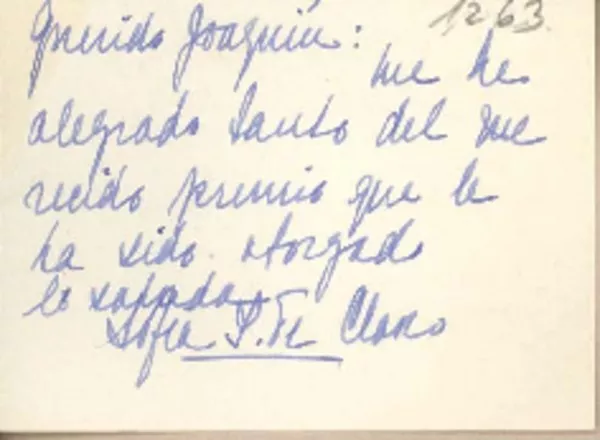 1263
Querido Joaquín:
me he
alegrado tanto del me
recido premio que le
ha sido otorgado
le
Sofía P. de Claro